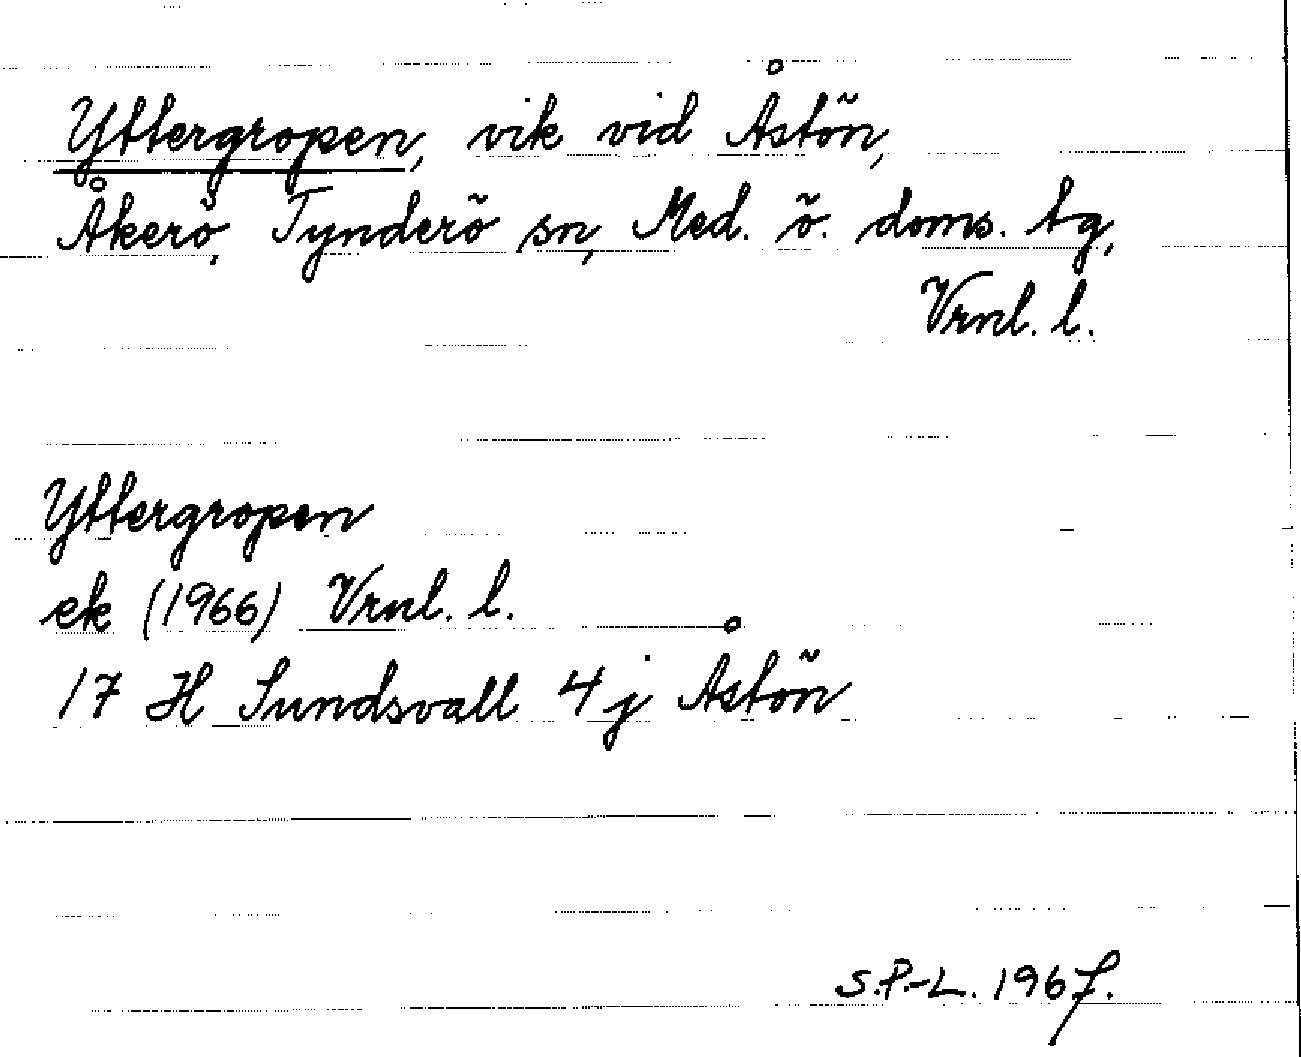 Yttergropen, vik vid Åstön,
Åkerö, Tynderö sn, Med. ö. doms. tg,
Vrnl. l.
Yttergropen
ek (1966) Vrnl. l.
17 H Sundsvall 4 j Åstön
S.P.-L. 1967.